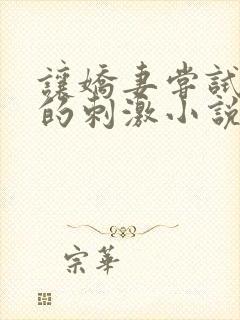 讓嬌妻嘗試
的刺激小說
宗華